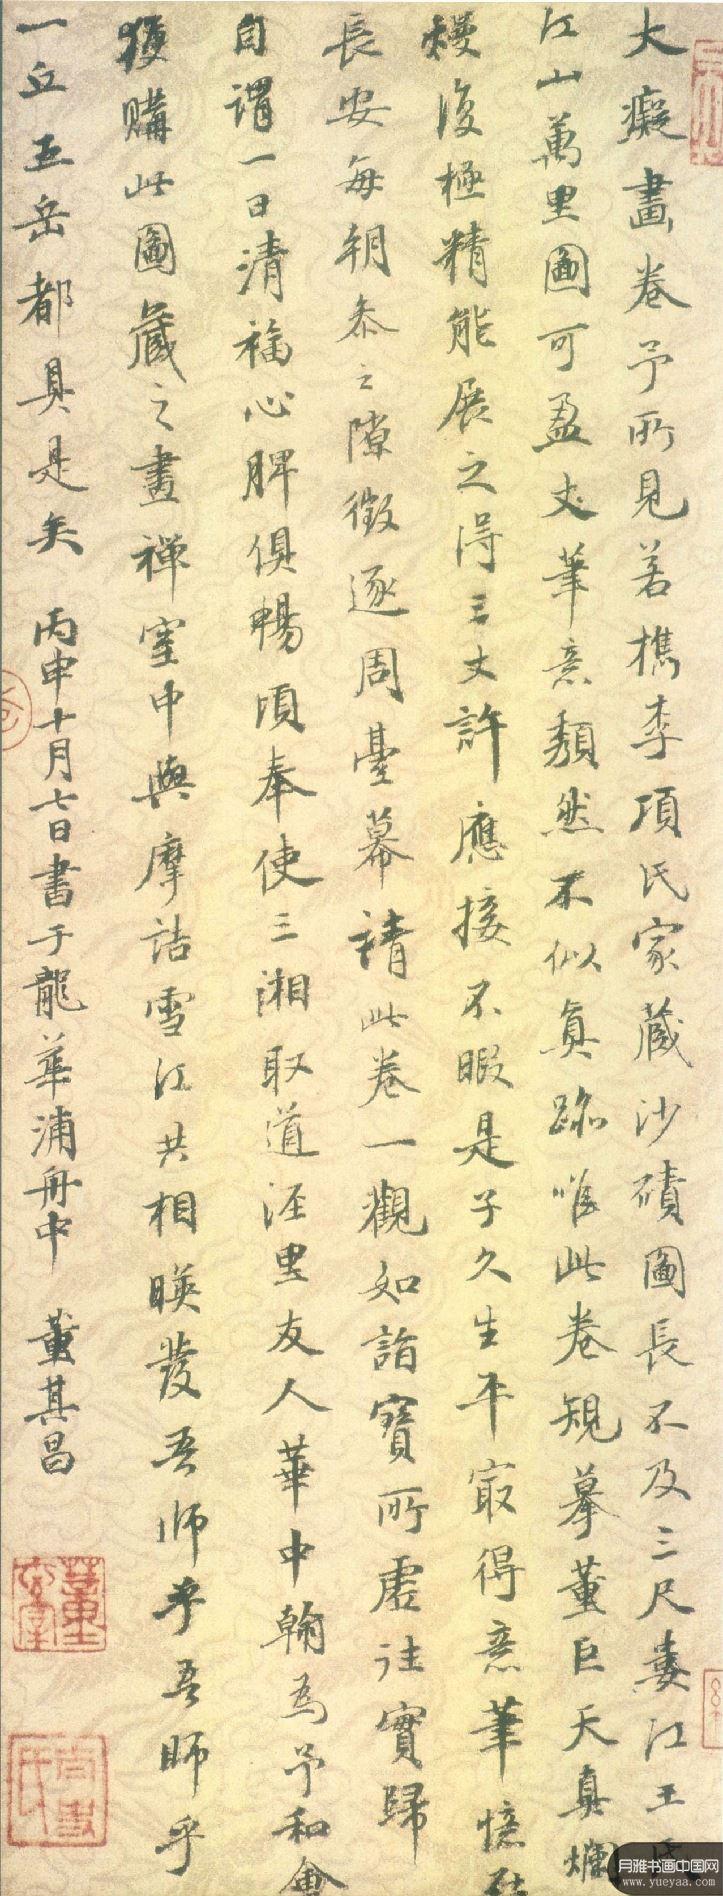 大癡畫卷予所見若檇李項氏家藏沙磧圖長不及三尺婁江王氏
江山萬里圖可盈丈筆意頹然不似真跡唯此卷規摹董巨天真爛
熳復極精能展之得三丈許應接不暇是子久生平㝡得意筆憶在
長安每朝參之隙徵逐周臺幕請此卷一觀如詣寶所虛往實歸
自謂一日清福心脾俱暢頃奉使三湘取道涇里友人華中翰為予和會
獲購此圖藏之畫禪室中與摩詰雪江共相暎發吾師乎吾師乎
一丘五岳都具是矣 丙申十月七日書于龍華浦舟中 董其昌
月雅书画中国网
www.yueyaa.com